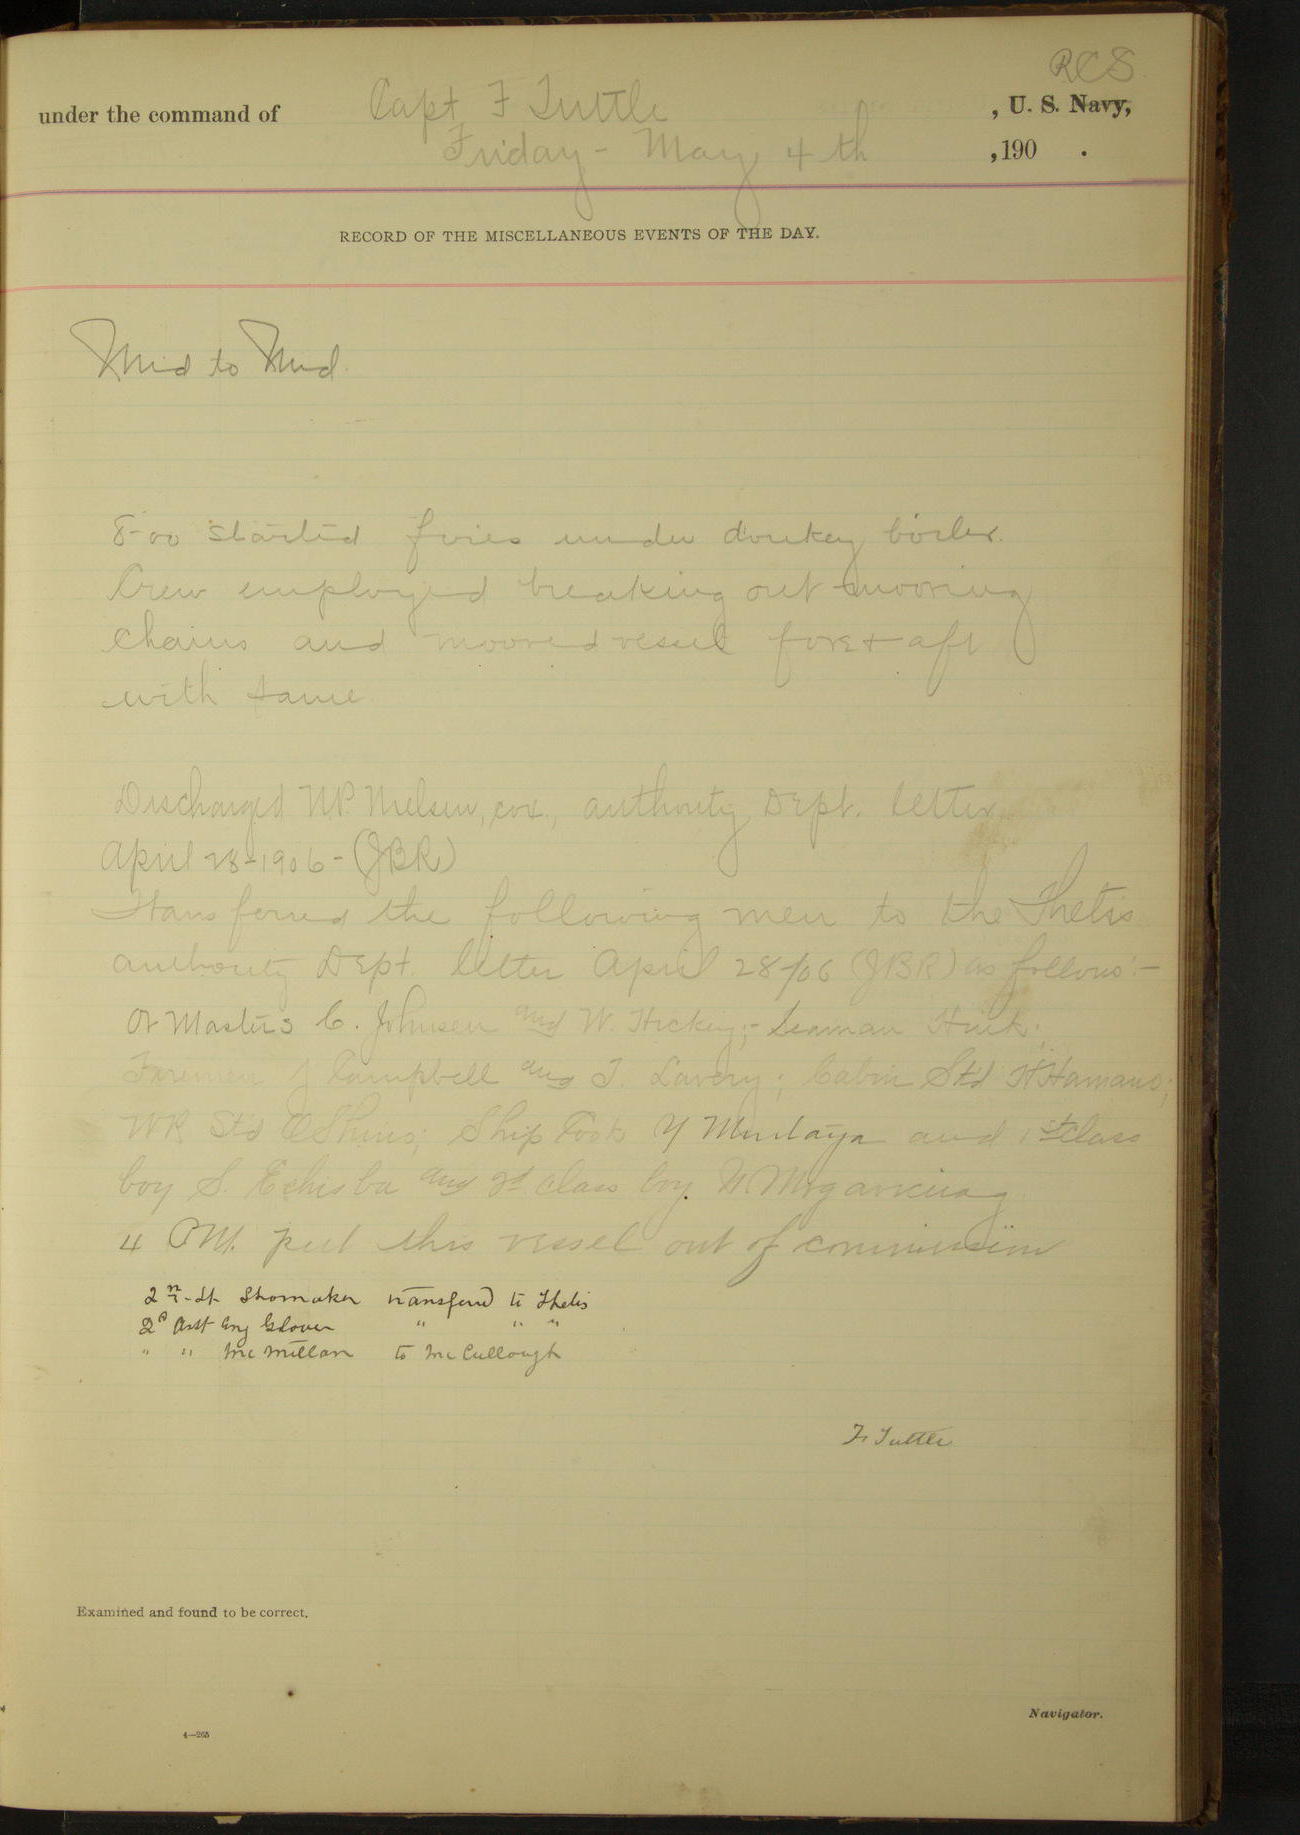 RCS
under the command of Capt F Tuttle, U. S. Navy,
Friday - May 4th ,190 .
RECORD OF THE MISCELLANEOUS EVENTS OF THE DAY.
Mid to Mid.
8-00 started fires under donkey boiler.
Crew employed breaking out mooring
chains and moored vessel fore & aft
with same
Discharged N.P. Nielsen, cox., authority Dept. letter
April 28-1906-(JBR)
Transferred the following men to the Thetis
authority Dept. letter April 28/06 (JBR) as follows:-
Qr Masters C. Johnsen and W. Hickey;- Seaman
Firemen J Campbell and T. Lavery; Cabin Std H Hamano;
WR Std Ship Cook Y and 1st class
boy S. and 2d class boy
4 P.M. put this vessel out of commission
2nd Lt Shomaker transferd to Thetis
2d Asst Eng Glover " " "
" " McMillan to McCullough
F. Tuttle
Examined and found to be correct.
Navigator.
4—265